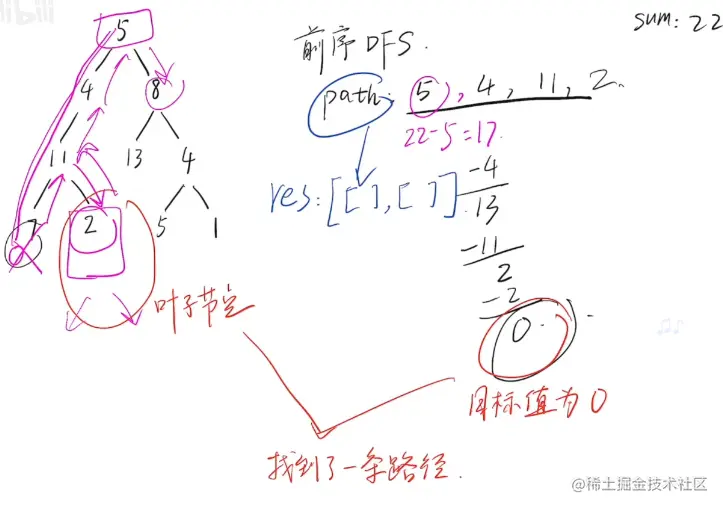 sum: 22
前序 DFS.
path: 5, 4, 11, 2.
22-5=17.
-4
13
-11
2
-2
0
res: [[ ], [ ]]
5
4 8
11 13 4
2 5 1
叶子节点
目标值为0
找到了一条路径.
@稀土掘金技术社区